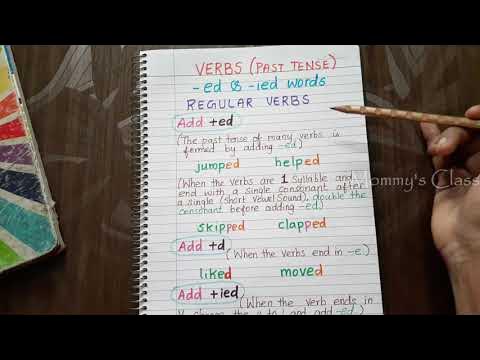 VERBS (PAST TENSE)
-ed & -ied words
REGULAR VERBS
Add +ed
(The past tense of many verbs is
formed by adding -ed)
jumped helped
(When the verbs are 1 Syllable and
end with a single consonant after
a single (short vowel sound), double the
consonant before adding -ed)
skipped clapped
Add +d (When the verbs end in -e)
liked moved
Add +ied (When the verb ends in
y change the y to i and add -ed)
Mommy's Class